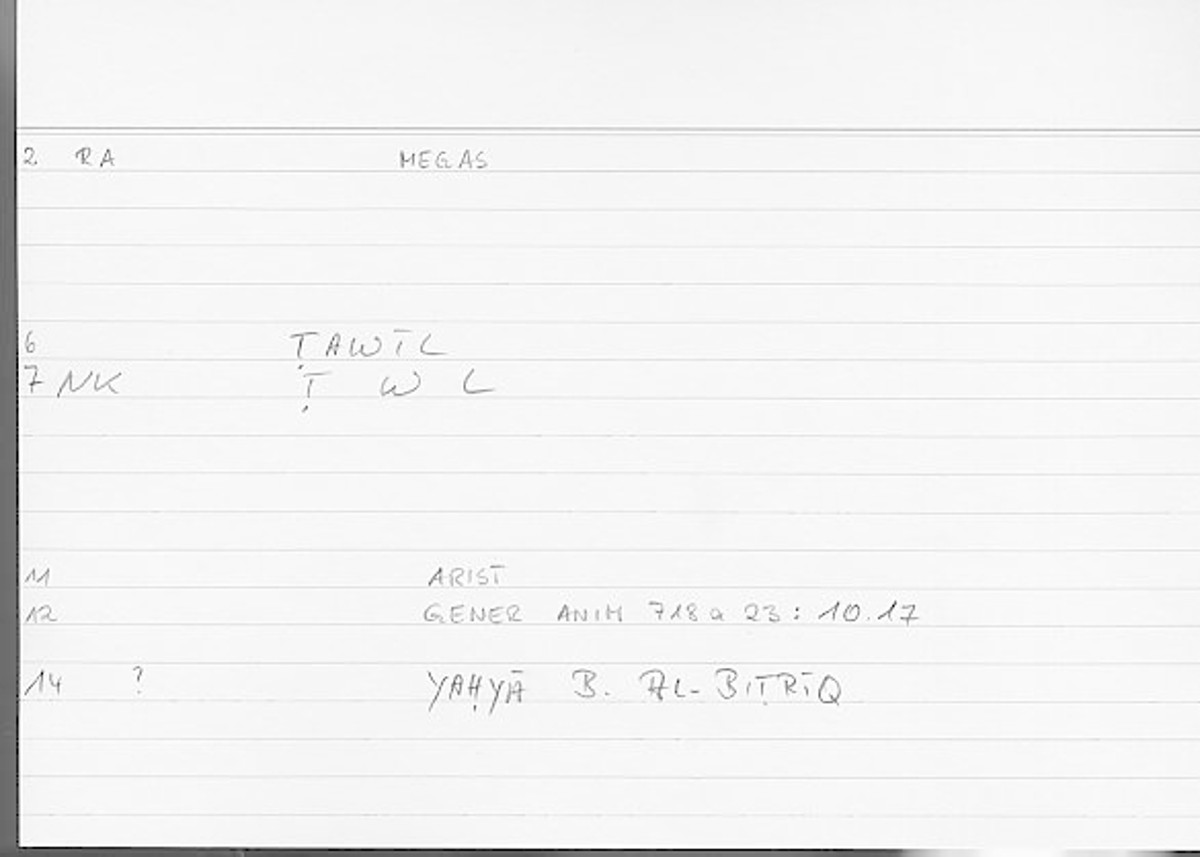 2 RA MEGAS
6 ṬAWĪL
7 NK Ṭ W L
11 ARIST
12 GENER ANIM 718 a 23 : 10.17
14 ? YAḤYĀ B. AL-BIṬRĪQ